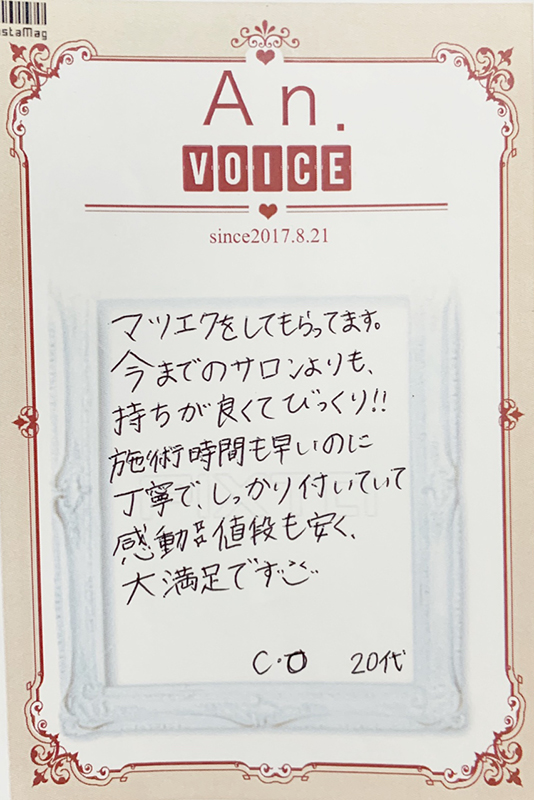 staMag
An.
VOICE
since2017.8.21
マツエクをしてもらってます。
今までのサロンよりも、
持ちが良くてびっくり!!
施術時間も早いのに
丁寧で、しっかり付いていて
感動 値段も安く、
大満足です
C・O 20代